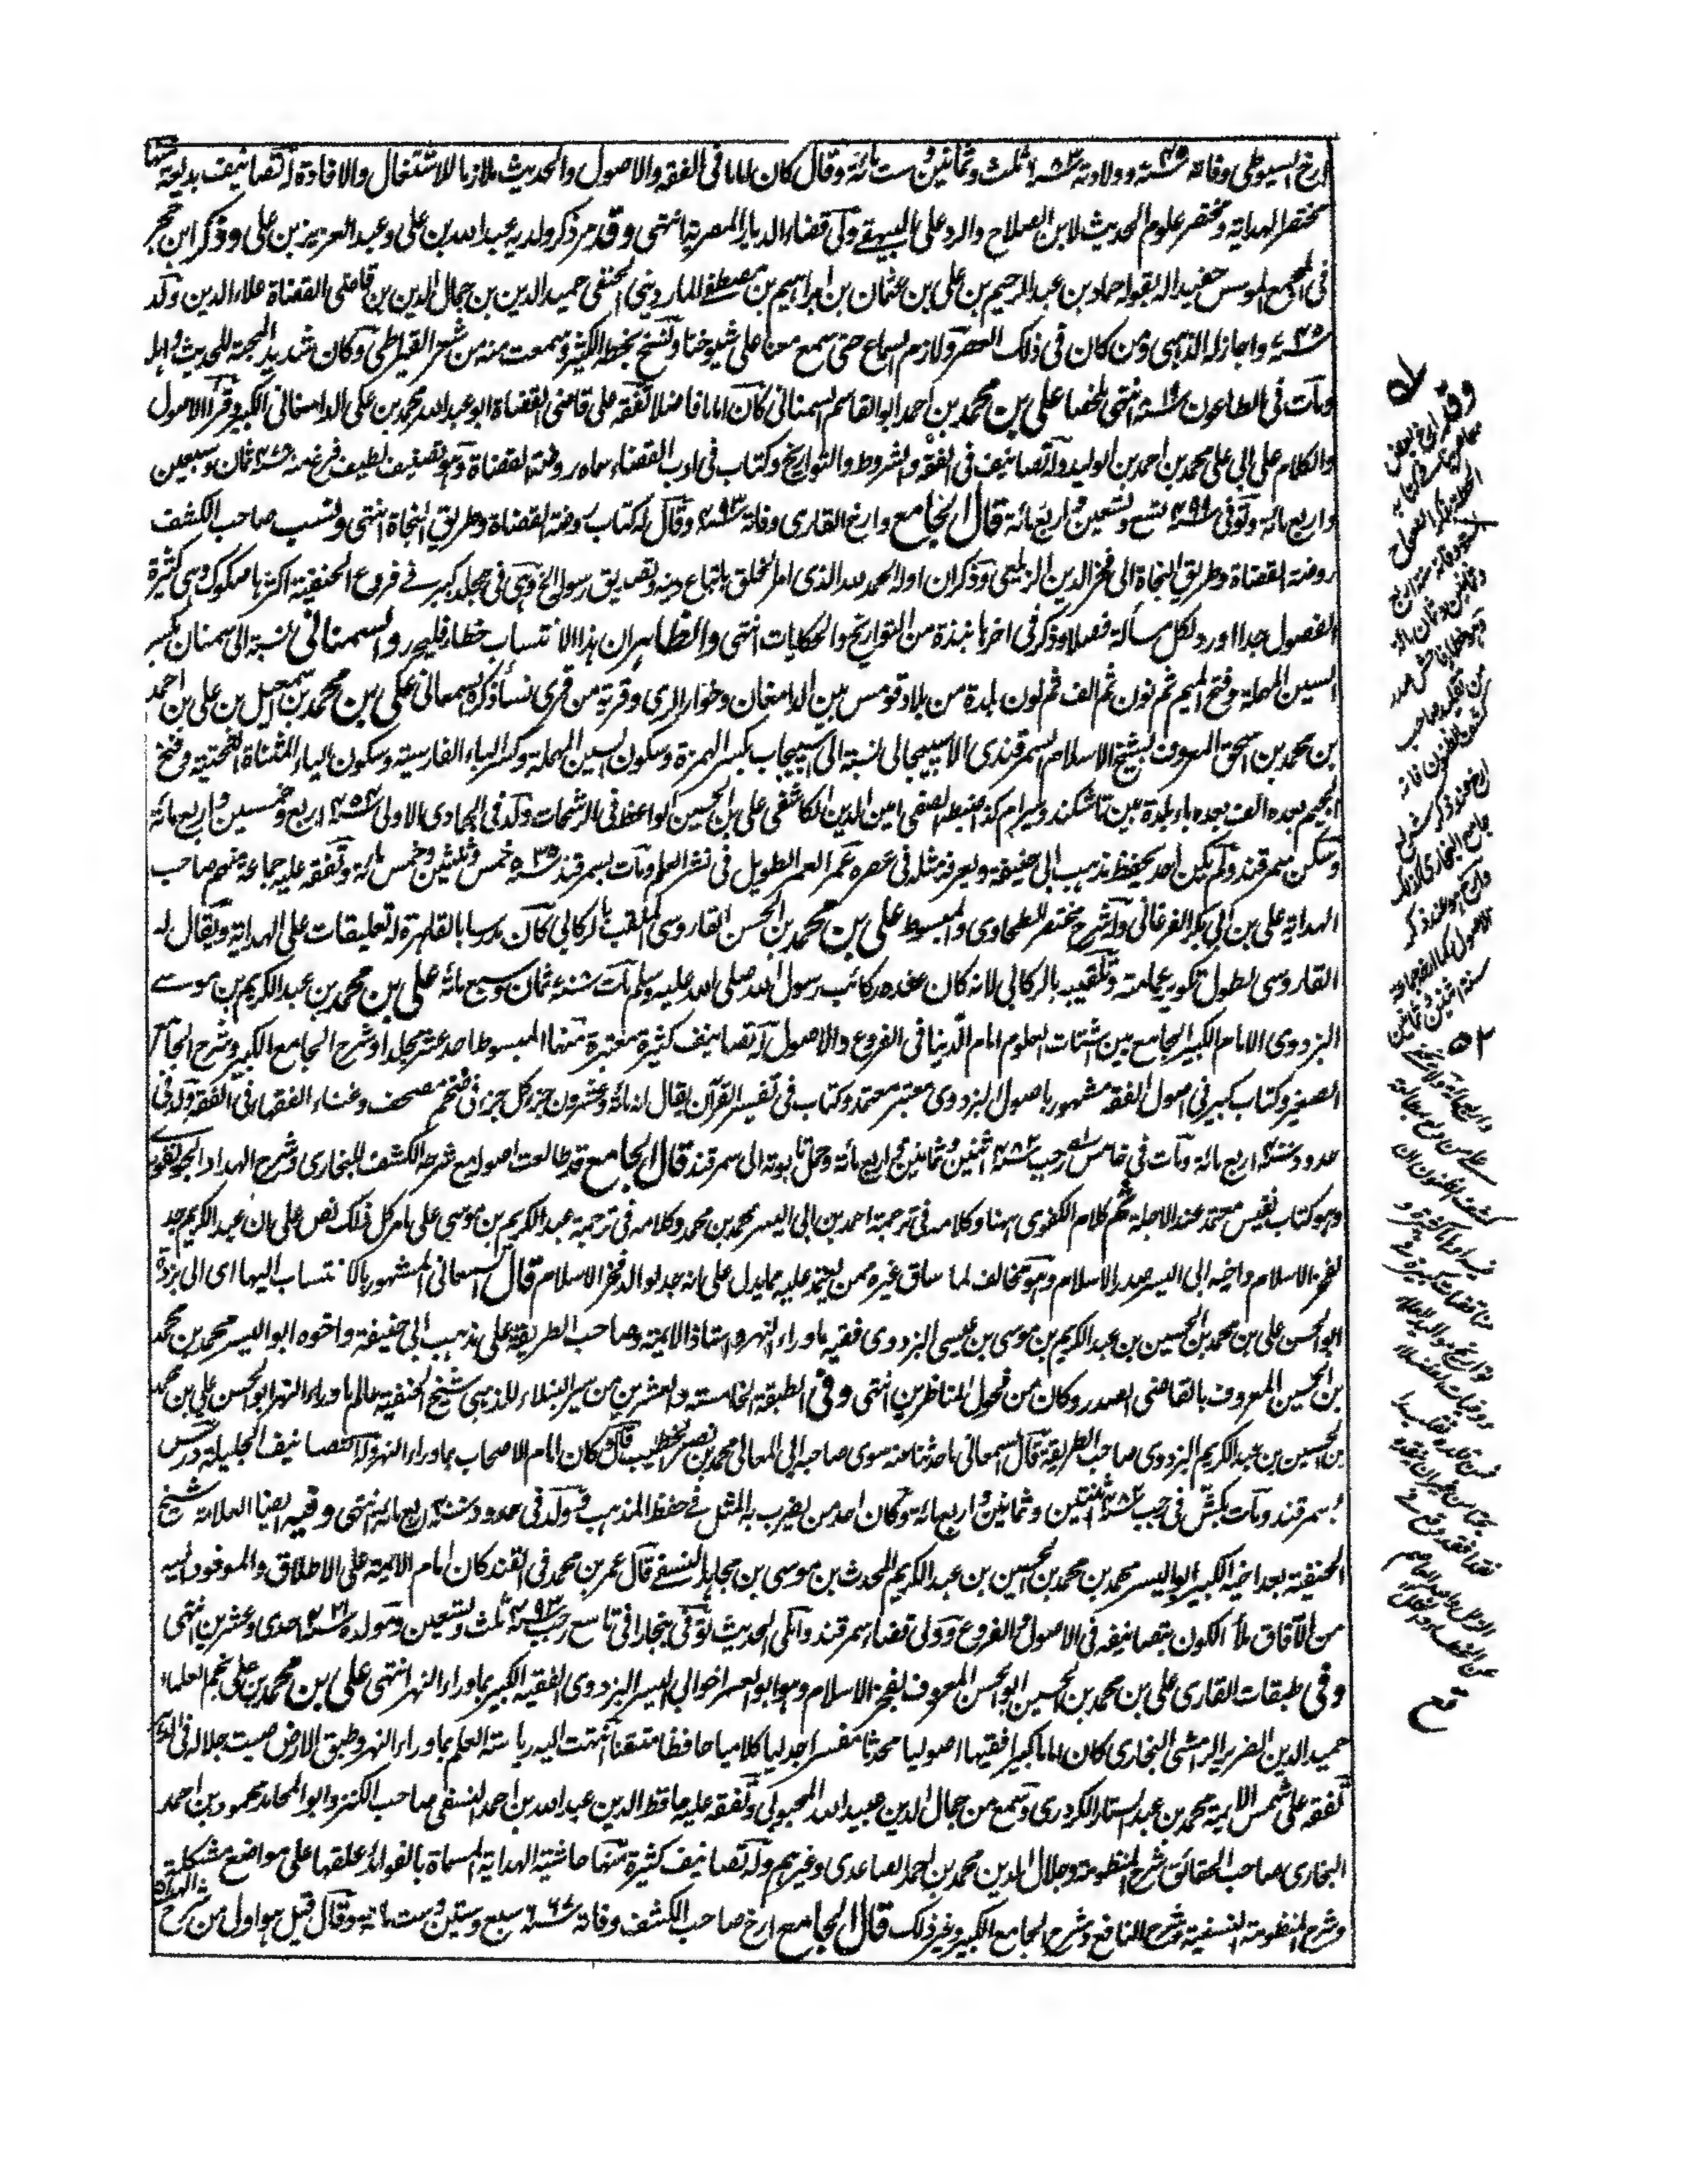 ارخ السيوطى وفاته ٧٤٥سنة وولادته ٦٨٣سنة ثلث وثمانين وست مائة وقال كان اماما فى الفقه والاصول والحديث ملازما للاشتغال والافادة له تصانيف بديعة منها
مختصر الهداية ومختصر علوم الحديث لابن الصلاح والرد على البيهقى ولى قضاء الديار المصرية انتهى وقد مر ذكر ولديه عبد الله بن على وعبد العزيز بن على وذكر ابن حجر
فى المجمع المؤسس حفيدا له بقوله حماد بن عبد الرحيم بن على بن عثمان بن ابراهيم بن مصطفى الماردينى الحنفى حميد الدين بن جمال الدين بن قاضى القضاة علاء الدين ولد
٧٤٥سنة واجاز له الذهبى ومن كان فى ذلك العصر ولازم السماع حتى سمع معنا على شيوخنا ونسخ بخطه الكثير وسمعت منه من شعر القيراطى وكان شديد المحبة للحديث واهله
ومات فى الطاعون ٨١٩سنة انتهى ملخصا على بن محمد بن احمد ابو القاسم السمنانى كان اماما فاضلا تفقه على قاضى القضاة ابو عبد الله محمد بن على الدامغانى الكبير وقرأ الاصول
والكلام على ابى على محمد بن احمد بن الوليد وله تصانيف فى الفقه والشروط والتواريخ وكتاب فى ادب القضاء سماه روضة القضاة وهو تصنيف لطيف فرغ منه ٤٧٨سنة ثمان وسبعين
واربع مائة وتوفى ٤٩٩سنة تسع وتسعين واربع مائة قال الجامع وارخ القارى وفاته ٤٩٣سنة وقال له كتاب روضة القضاة وطريق النجاة انتهى ونسب صاحب الكشف
روضة القضاة وطريق النجاة الى فخر الدين الزيلعى وذكر ان اوله الحمد لله الذى امر الخلق باتباع دينه وتصديق رسوله الخ وهى فى مجلد كبير فى فروع الحنفية اكثرها صكوك وهى كثيرة
الفصول جدا اورد لكل مسألة فصلا وذكر فى اخرها نبذة من التواريخ والحكايات انتهى والظاهر ان هذا الانتساب خطا فليحرر والسمنانى نسبة الى سمنان بكسر
السين المهملة وفتح الميم ثم نون ثم الف ثم نون بلدة من بلاد قومس بين الدامغان وخوار الرى وقرية من قرى نسا ذكره السمعانى على بن محمد بن اسمعيل بن على بن احمد
بن محمد بن اسحق المعروف بشيخ الاسلام السمرقندى الاسبيجابى نسبة الى اسبيجاب بكسر الهمزة وسكون السين المهملة وكسر الباء الفارسية وسكون الياء المثناة التحتية وفتح
الجيم بعده الف بعده باء بلدة بين تاشكند وسيرام كذا ضبطه الصفى امين الدين الكاشفى على بن الحسين الواعظ فى الرشحات ولد فى الجمادى الاولى ٤٥٤سنة اربع وخمسين واربع مائة
وسكن سمرقند ولم يكن احد يحفظ مذهب ابى حنيفة ويعرفه مثله فى عصره عمر العمر الطويل فى نشر العلم ومات بسمرقند ٥٣٥سنة خمس وثلثين وخمس مائة وتفقه عليه جماعة منهم صاحب
الهداية على بن ابى بكر الفرغانى وله شرح مختصر الطحاوى والمبسوط على بن محمد بن الحسن القاروسى الملقب بالركابى كان مدرسا بالقاهرة له تعليقات على الهداية ويقال له
القاروسى لطول تكوير عمامته وتلقيبه بالركابى لانه كان عنده ركائب رسول الله صلى الله عليه وسلم مات ٧٠٨سنة ثمان وسبع مائة على بن محمد بن عبد الكريم بن موسى
البزدوى الامام الكبير الجامع بين اشتات العلوم امام الدنيا فى الفروع والاصول له تصانيف كثيرة معتبرة منها المبسوط احد عشر مجلدا وشرح الجامع الكبير وشرح الجامع
الصغير وكتاب كبير فى اصول الفقه مشهور باصول البزدوى معتبر معتمد وكتاب فى تفسير القرآن يقال انه مائة وعشرون جزء كل جزء فى ضخم مصحف وغناء الفقهاء فى الفقه ولد فى
حدود ٤٠٠سنة اربع مائة ومات فى خامس رجب ٤٨٢سنة اثنين وثمانين واربع مائة وحمل تابوته الى سمرقند قال الجامع قد طالعت اصوله مع شرحه الكشف للبخارى وشرح الهداد الجونفورى
وهو كتاب نفيس معتمد عند الاجلة ثم كلام الكفوى ههنا وكلامه فى ترجمة احمد بن ابى اليسر محمد بن محمد وكلامه فى ترجمة عبد الكريم بن موسى على ما مر كل ذلك نص على ان عبد الكريم جد
لفخر الاسلام واخيه ابى اليسر صدر الاسلام وهو مخالف لما ساق غيره ممن يعتمد عليه مما يدل على انه جد والد فخر الاسلام قال السمعانى المشهور بالانتساب اليها اى الى بزدة
ابو الحسن على بن محمد بن الحسين بن عبد الكريم بن موسى بن عيسى البزدوى فقيه ماوراء النهر واستاذ الائمة وصاحب الطريقة على مذهب ابى حنيفة واخوه ابو اليسر محمد بن محمد
بن الحسين المعروف بالقاضى الصدر وكان من فحول المناظرين انتهى وفى الطبقة الخامسة والعشرين من سير النبلاء للذهبى شيخ الحنفية عالم ماوراء النهر ابو الحسن على بن محمد
بن الحسين بن عبد الكريم البزدوى صاحب الطريقة قال السمعانى ما حدثنا عنه سوى صاحبه ابى المعالى محمد بن نصر الخطيب قال كان امام الاصحاب بماوراء النهر وله التصانيف الجليلة درس
بسمرقند ومات بكش فى رجب ٤٨٢سنة اثنتين وثمانين واربع مائة وكان احد من يضرب به المثل فى حفظ المذهب وولد فى حدود ٤٠٠سنة اربع مائة انتهى وفيه ايضا العلامة شيخ
الحنفية بعد اخيه الكبير ابو اليسر محمد بن محمد بن الحسين بن عبد الكريم المحدث بن موسى بن مجاهد النسفى قال عمر بن محمد فى القند كان امام الائمة على الاطلاق والموفود اليه
من الآفاق ملأ الكون بتصانيفه فى الاصول والفروع وولى قضاء سمرقند واملى الحديث توفى ببخارا فى تاسع رجب ٤٩٣سنة ثلث وتسعين ومولده ٤٢١سنة احدى وعشرين انتهى
وفى طبقات القارى على بن محمد بن الحسين ابو الحسن المعروف بفخر الاسلام وهو ابو العسر اخو ابى اليسر البزدوى الفقيه الكبير بماوراء النهر انتهى على بن محمد بن على نجم العلماء
حميد الدين الضرير الرامشى البخارى كان اماما كبيرا فقيها اصوليا محدثا مفسرا جدليا كلاميا حافظا متقنا انتهت اليه رياسة العلم بماوراء النهر وطبق الارض صيت جلاله فى
تفقه على شمس الائمة محمد بن عبد الستار الكردرى وسمع من جمال الدين عبيد الله المحبوبى وتفقه عليه حافظ الدين عبد الله بن احمد النسفى صاحب الكنز وابو المحامد محمود بن احمد
البخارى صاحب الحقائق شرح المنظومة وجلال الدين محمد بن احمد الصاعدى وغيرهم وله تصانيف كثيرة منها حاشية الهداية المسماة بالفوائد علقها على مواضع مشكلة
وشرح المنظومة النسفية وشرح النافع وشرح الجامع الكبير وغير ذلك قال الجامع ارخ صاحب الكشف وفاته ٦٦٧سنة سبع وستين وست مائة وقال قيل هو اول من شرح الهداية